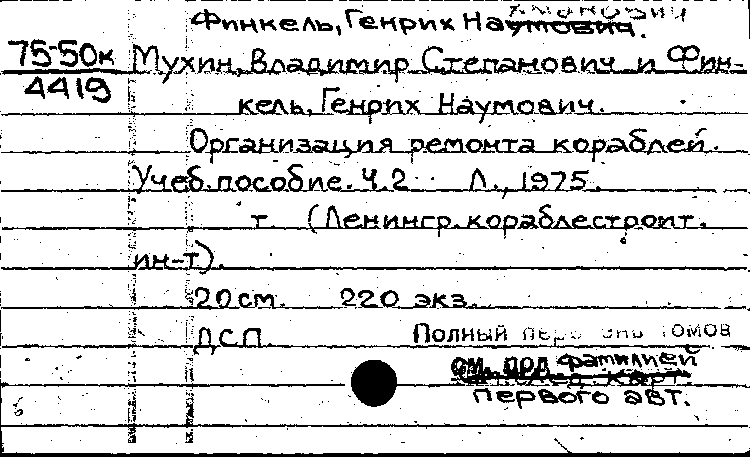 Финкель, Генрих Наумович.
75-50к Мухин, Владимир Степанович и Фин-
4419
кель, Генрих Наумович.
Организация ремонта кораблей.
Учеб. пособие. Ч. 2 Л., 1975.
т. (Ленингр. кораблестроит.
ин-т).
20 см. 220 экз.
ДСП. Полный томов
см. под фамилией
первого авт.